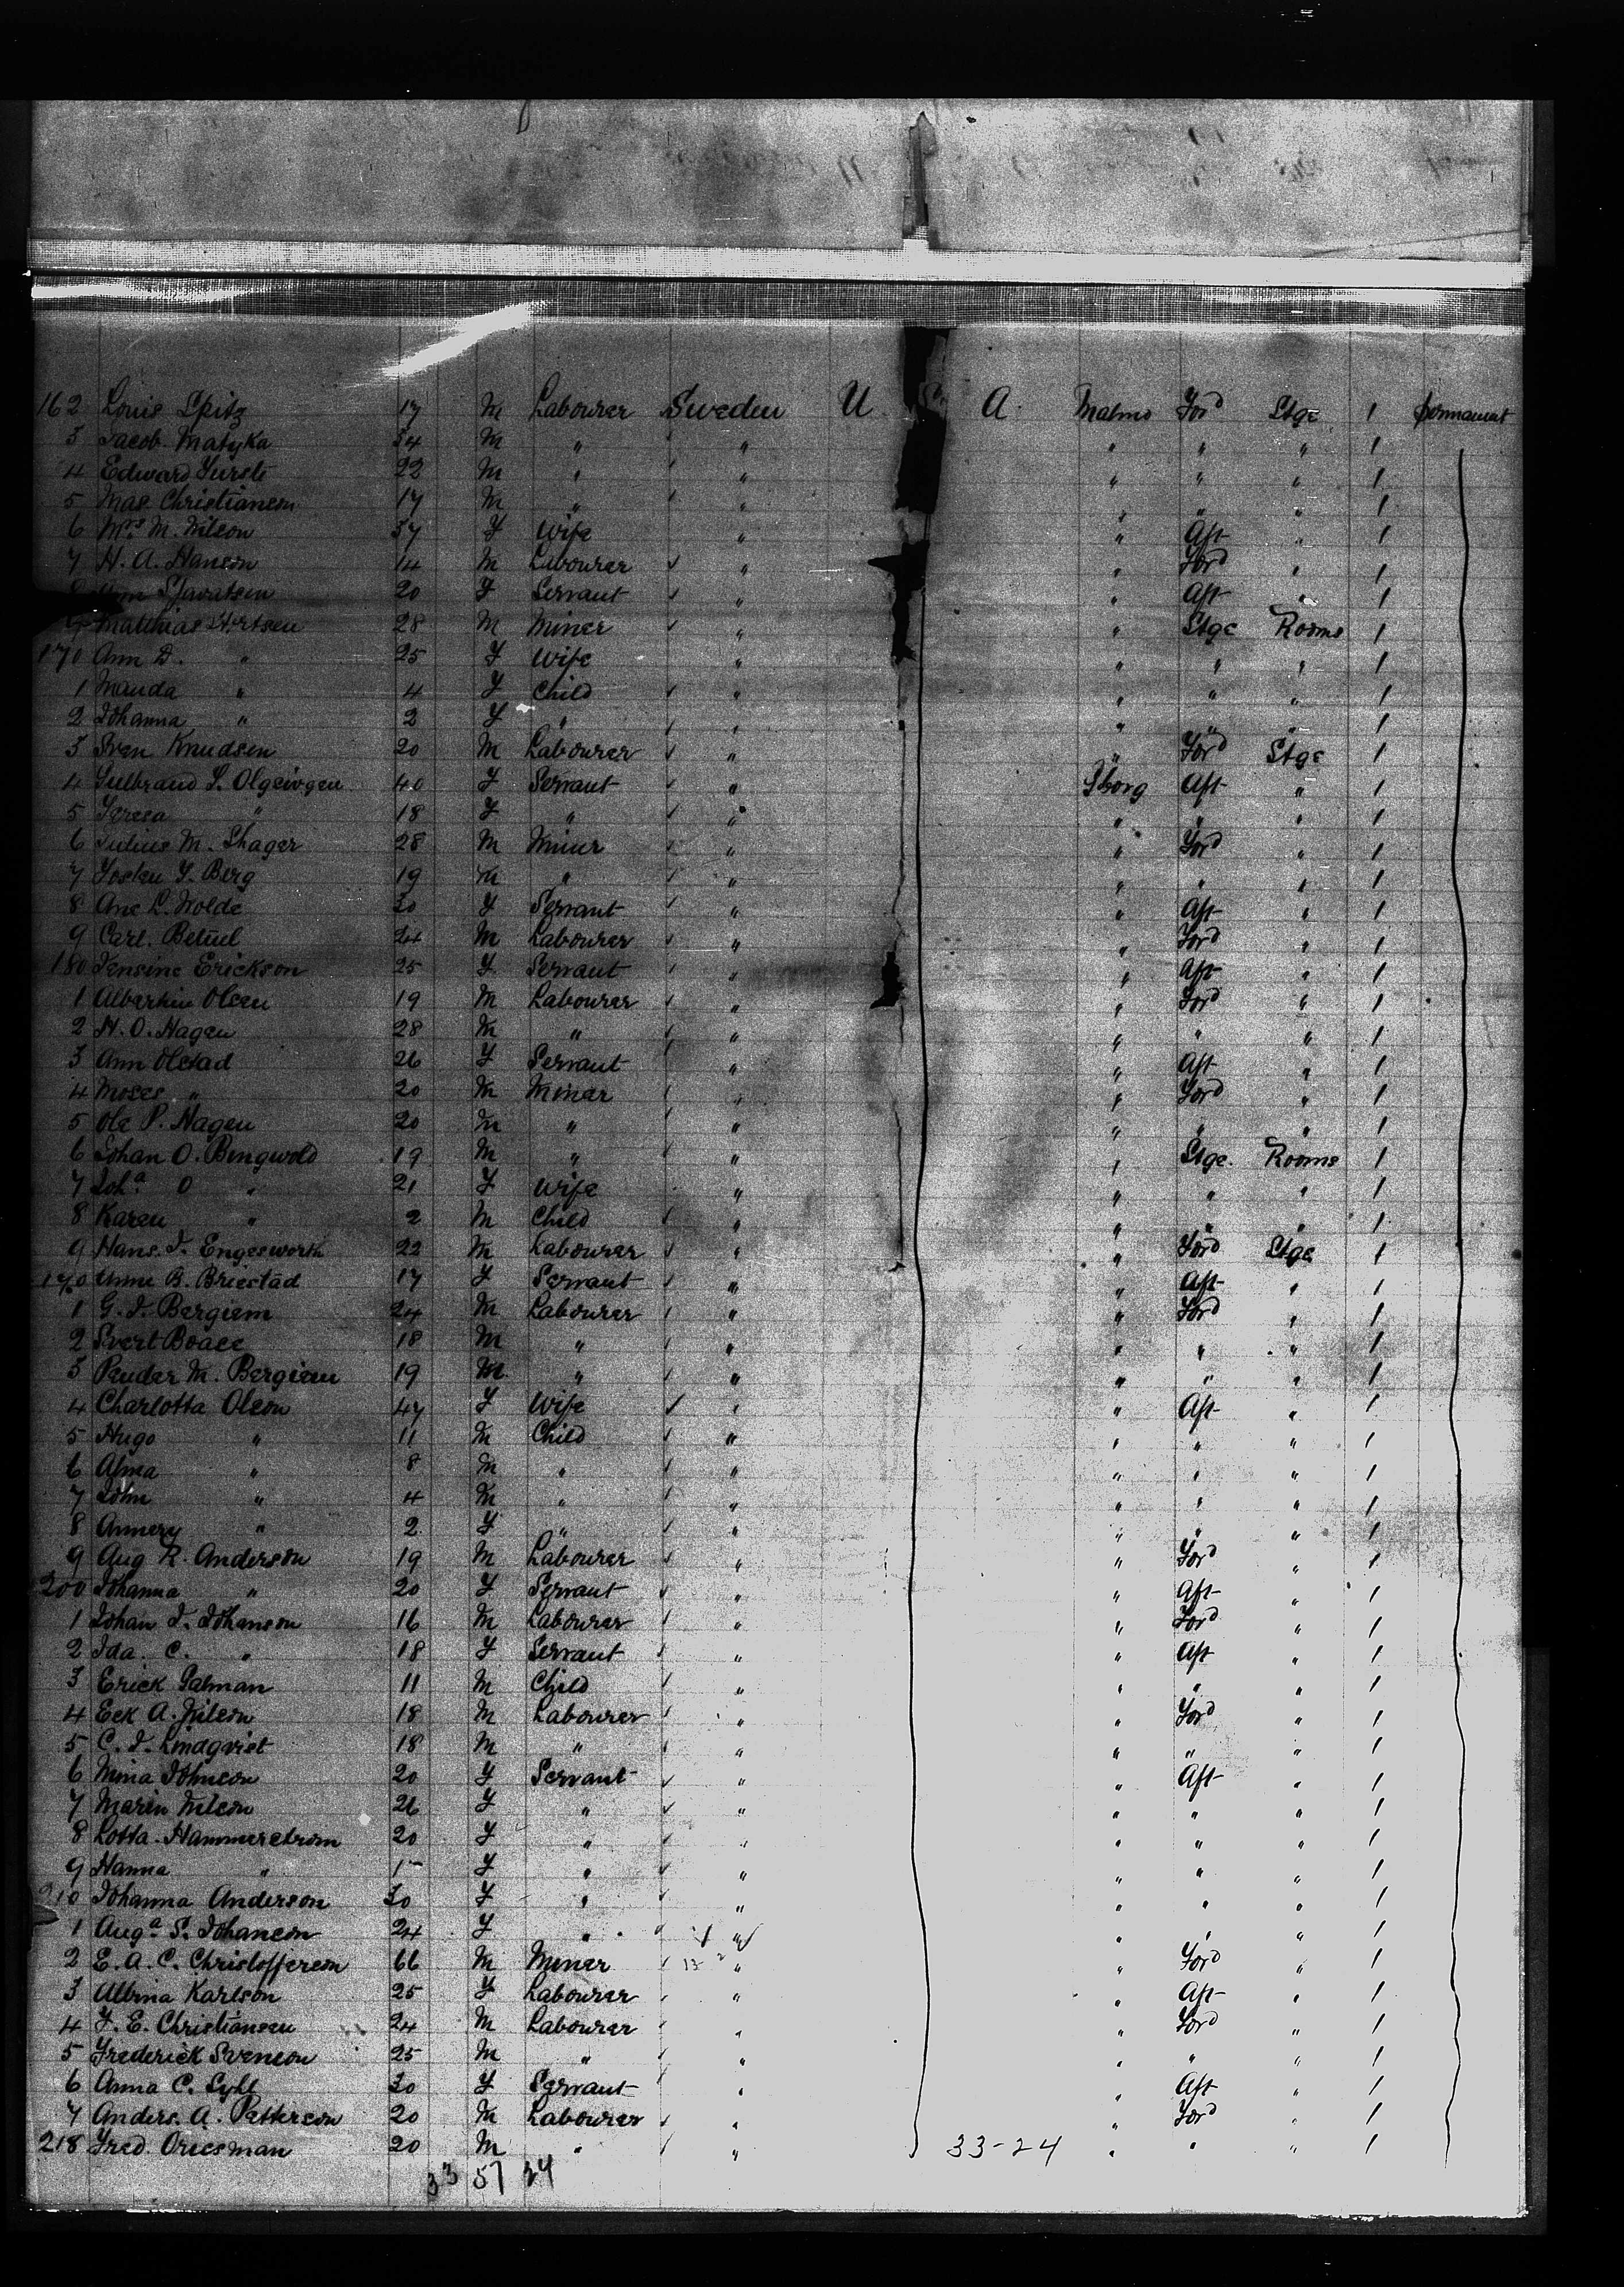 162 Louis Spitz 17 M Labourer Sweden U S. A. Malmo Ford Stge 1 permanent
3 Jacob Matyka 34 M " " " " " 1
4 Edward 22 M " " " " " 1
5 Mas Christiansen 17 M " " " " " 1
6 Mrs M. Nilson 37 F Wife " " Aft " 1
7 H. A. Hanson 14 M Labourer " " Ford " 1
20 F Servant " " Aft " 1
9 Matthias 28 M Miner " " Stge Rooms 1
170 Ann D. " 25 F Wife " " " " 1
1 Manda " 4 F Child " " " " 1
2 Johanna " 2 F " " " " " 1
3 Sven Knudsen 20 M Labourer " " Ford Stge 1
4 Gulbrand S. 40 F Servant " Gborg Aft " 1
5 Teresa " 18 F " " " " " 1
6 Julius M. Shager 28 M Miner " " Ford " 1
7 Y. Berg 19 M " " " " " 1
8 Ane L. Nolde 30 F Servant " " Aft " 1
9 Carl. 24 M Labourer " " Ford " 1
180 Jensine Erickson 25 F Servant " " Aft " 1
1 Olsen 19 M Labourer " " Ford " 1
2 H. O. Hagen 28 M " " " " " 1
3 Ann Olstad 26 F Servant " " Aft " 1
4 Moses " 20 M Miner " " Ford " 1
5 Ole P. Hagen 20 M " " " " " 1
6 Johan O. Bingwold 19 M " " " Stge. Rooms 1
7 Joha O " 21 F Wife " " " " 1
8 Karen " 2 M Child " " " " 1
9 Hans. J. Engesworth 22 M Labourer " " Ford Stge 1
190 Anne B. Briestad 17 F Servant " " Aft " 1
1 G. J. Bergiem 24 M Labourer " " Ford " 1
2 Svert Boace 18 M " " " " " 1
3 Peuder M. Bergiem 19 M. " " " " " 1
4 Charlotta Olson 47 F Wife " " Aft " 1
5 Hugo " 11 M Child " " " " 1
6 Alma " 8 M " " " " " 1
7 John " 4 M " " " " " 1
8 Annery " 2 F " " " " " 1
9 Aug R. Anderson 19 M Labourer " " Ford " 1
200 Johanna " 20 F Servant " " Aft " 1
1 Johan J. Johanson 16 M Labourer " " Ford " 1
2 Ida. C. " 18 F Servant " " Aft " 1
3 Erick Galman 11 M Child " " " " 1
4 Eck A. Nilson 18 M Labourer " " Ford " 1
5 C. J. Lindqvist 18 M " " " " " 1
6 Mina Johnson 20 F Servant " " Aft " 1
7 Marin Nilson 26 F " " " " " 1
8 Lotta Hammerstrom 20 F " " " " " 1
9 Hanna " F " " " " " 1
210 Johanna Anderson 30 F " " " " " 1
1 Auga S. Johanson 24 F " " " " " 1
2 E. A. C. Christofferson 66 M Miner " " Ford " 1
3 Albina Karlson 25 F Labourer " " Aft " 1
4 F. E. Christiansen 24 M Labourer " " Ford " 1
5 Frederick Svenson 25 M " " " " " 1
6 Anna C. Syhl 30 F Servant " " Aft " 1
7 Anders. A. Petterson 20 M Labourer " " Ford " 1
218 Fred Oriesman 20 M " " 33-24 " " " 1
33 57 24